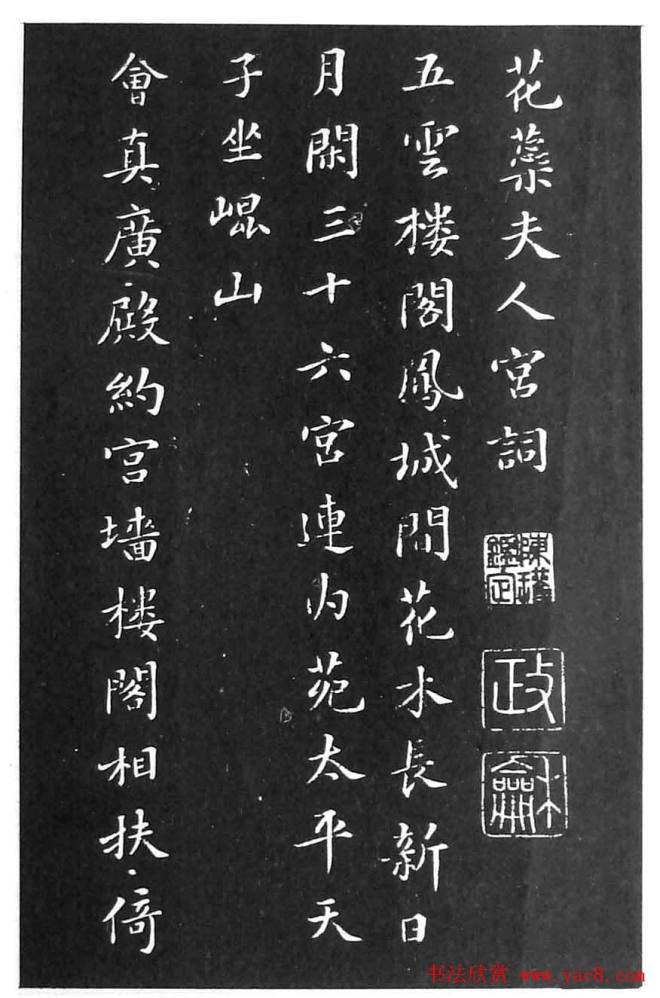 花蘂夫人宮詞
陳𤩽鑑定
政
龢
五雲楼閣鳳城間花木長新日
月閑三十六宮連内苑太平天
子坐崐山
會真廣殿約宫墙楼閣相扶倚
书法欣赏 www.yac8.com